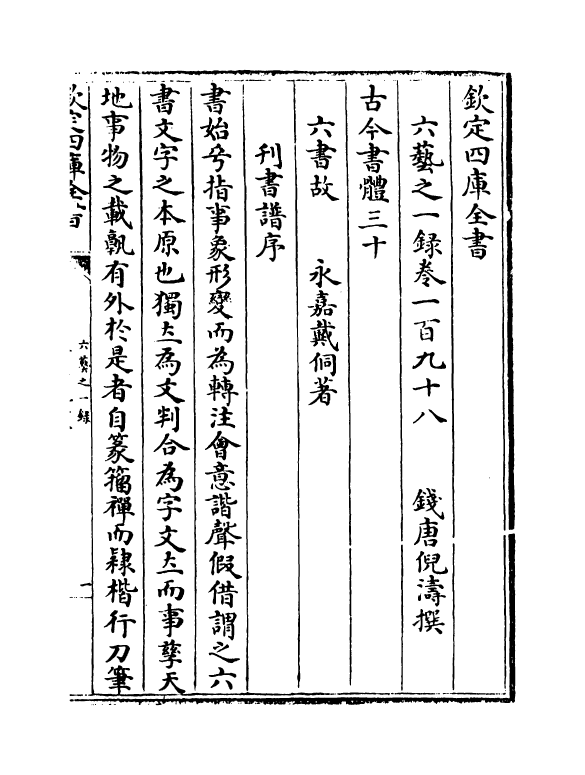 欽定四庫全書
六藝之一録卷一百九十八 錢唐倪濤撰
古今書體三十
六書故 永嘉戴侗著
刋書譜序
書始兮指事象形變而為轉注會意諧聲假借謂之六
書文字之本原也獨立為文判合為字文立而事孳天
地事物之載孰有外於是者自篆籀禪而隸楷行刀筆
欽定四庫全書
六藝之一録
一